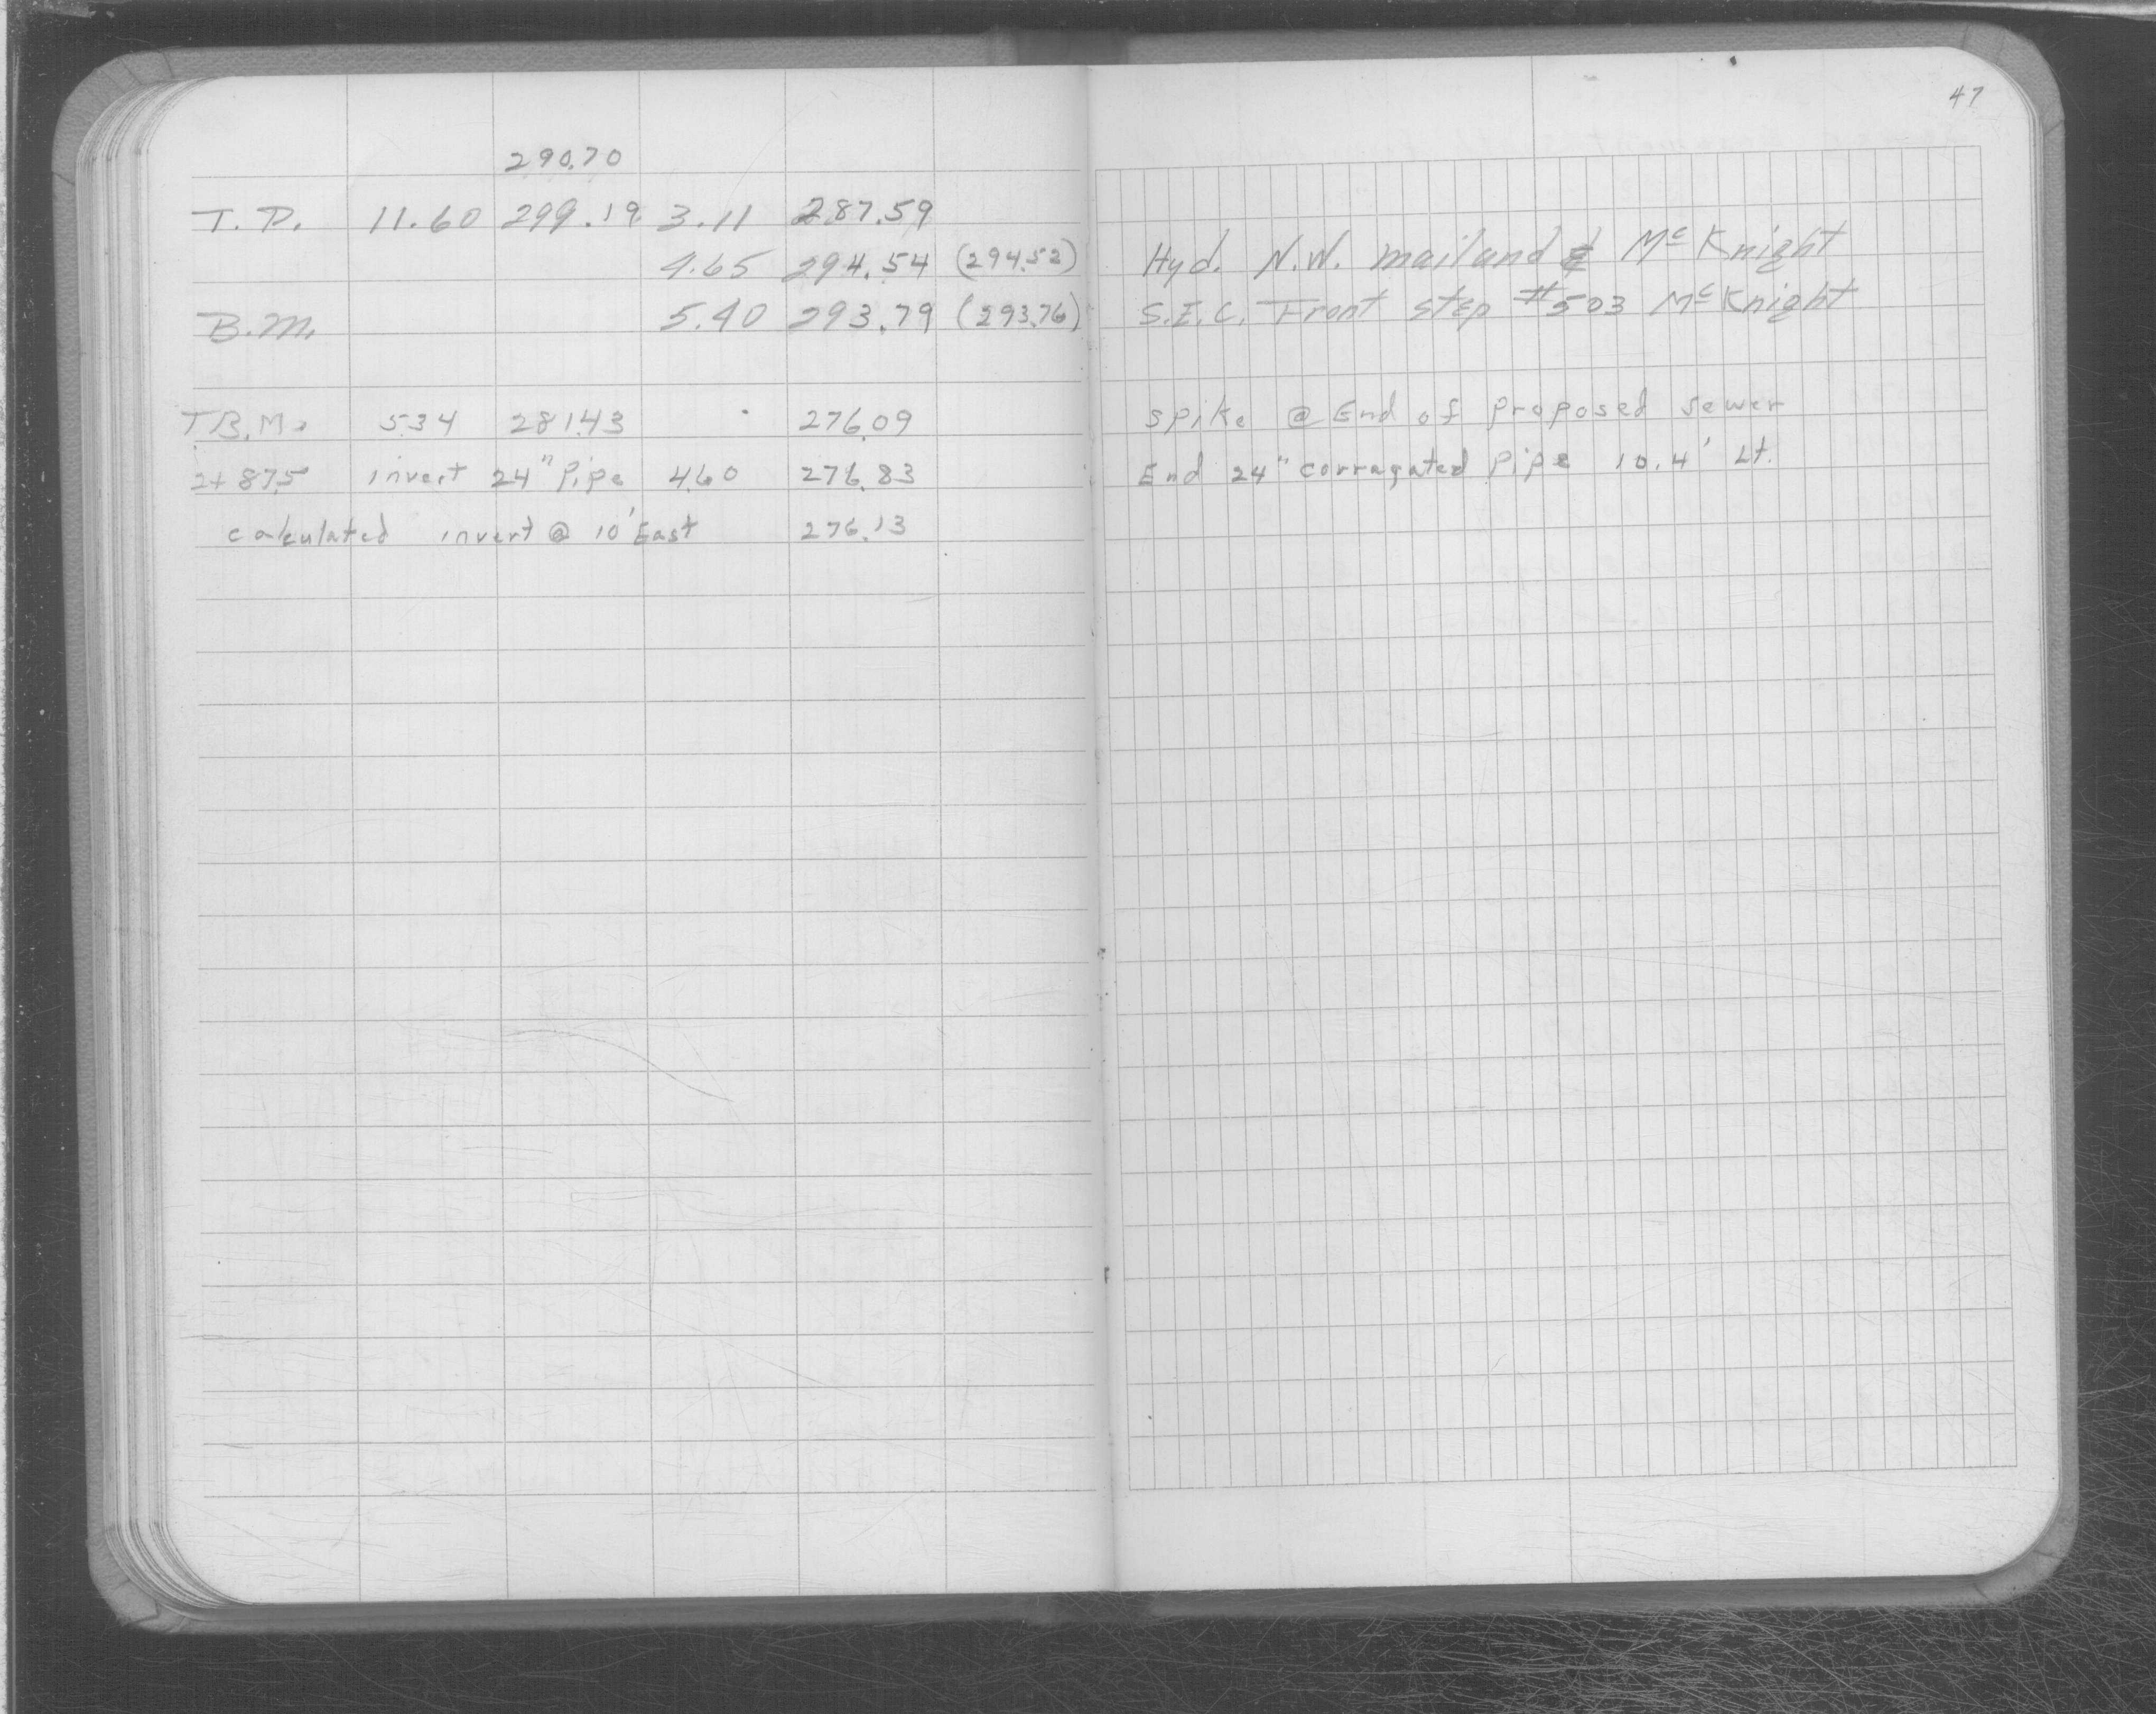 47
290.70
T.P. 11.60 299.19 3.11 287.59
4.65 294.54 (294.52) Hyd. N.W. mailand & McKnight
B.M. 5.40 293.79 (293.76) S.E.C. Front step #503 McKnight
T.B.M. 5.34 281.43 276.09 spike @ End of proposed sewer
2+87.5 invert 24" Pipe 4.60 276.83 End 24" corragated pipe 10.4' Lt.
calculated invert @ 10' East 276.13